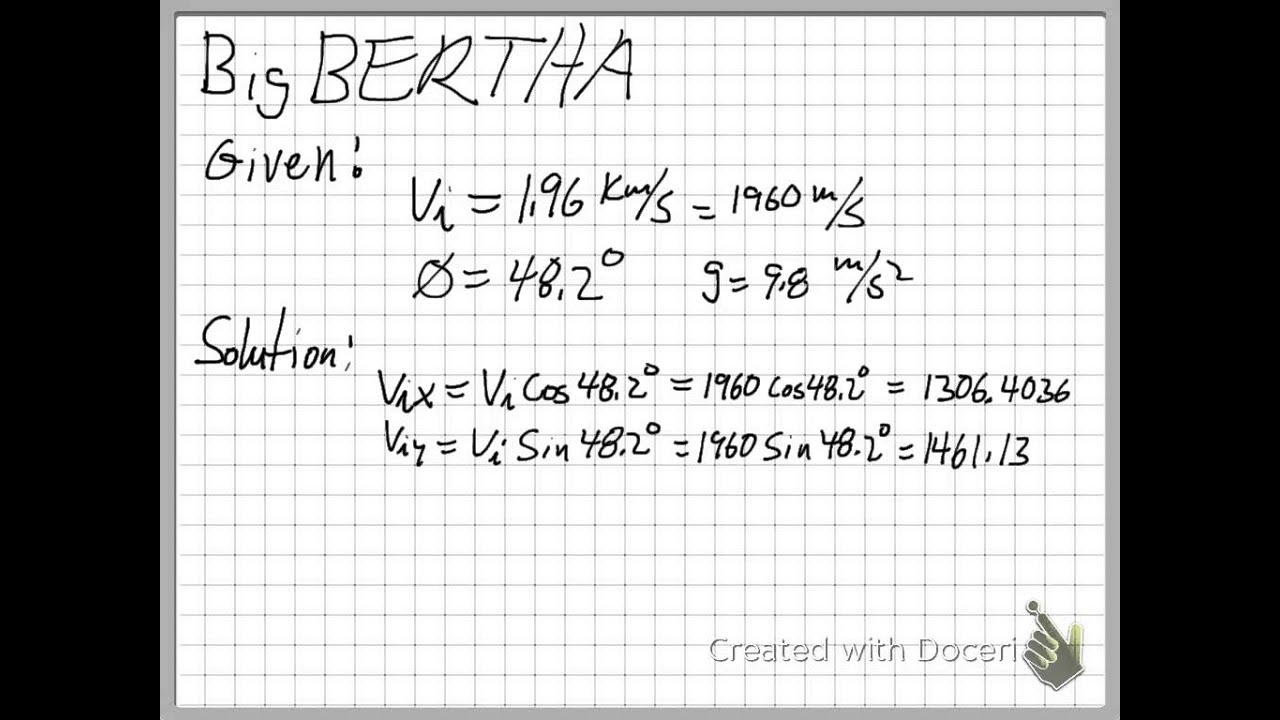 Big BERTHA
Given:
Vi = 1.96 Km/s = 1960 m/s
Ø = 48.2° g = 9.8 m/s²
Solution:
Vix = Vi Cos 48.2° = 1960 Cos 48.2° = 1306.4036
Viy = Vi Sin 48.2° = 1960 Sin 48.2° = 1461.13
Created with Doceri